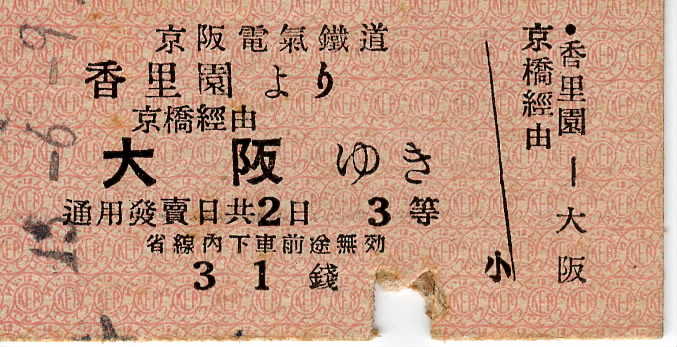 京阪電氣鐵道
香里園より
京橋經由
大阪ゆき
通用發賣日共2日 3等
省線內下車前途無効
31錢
小
●香里園―大阪
京橋經由